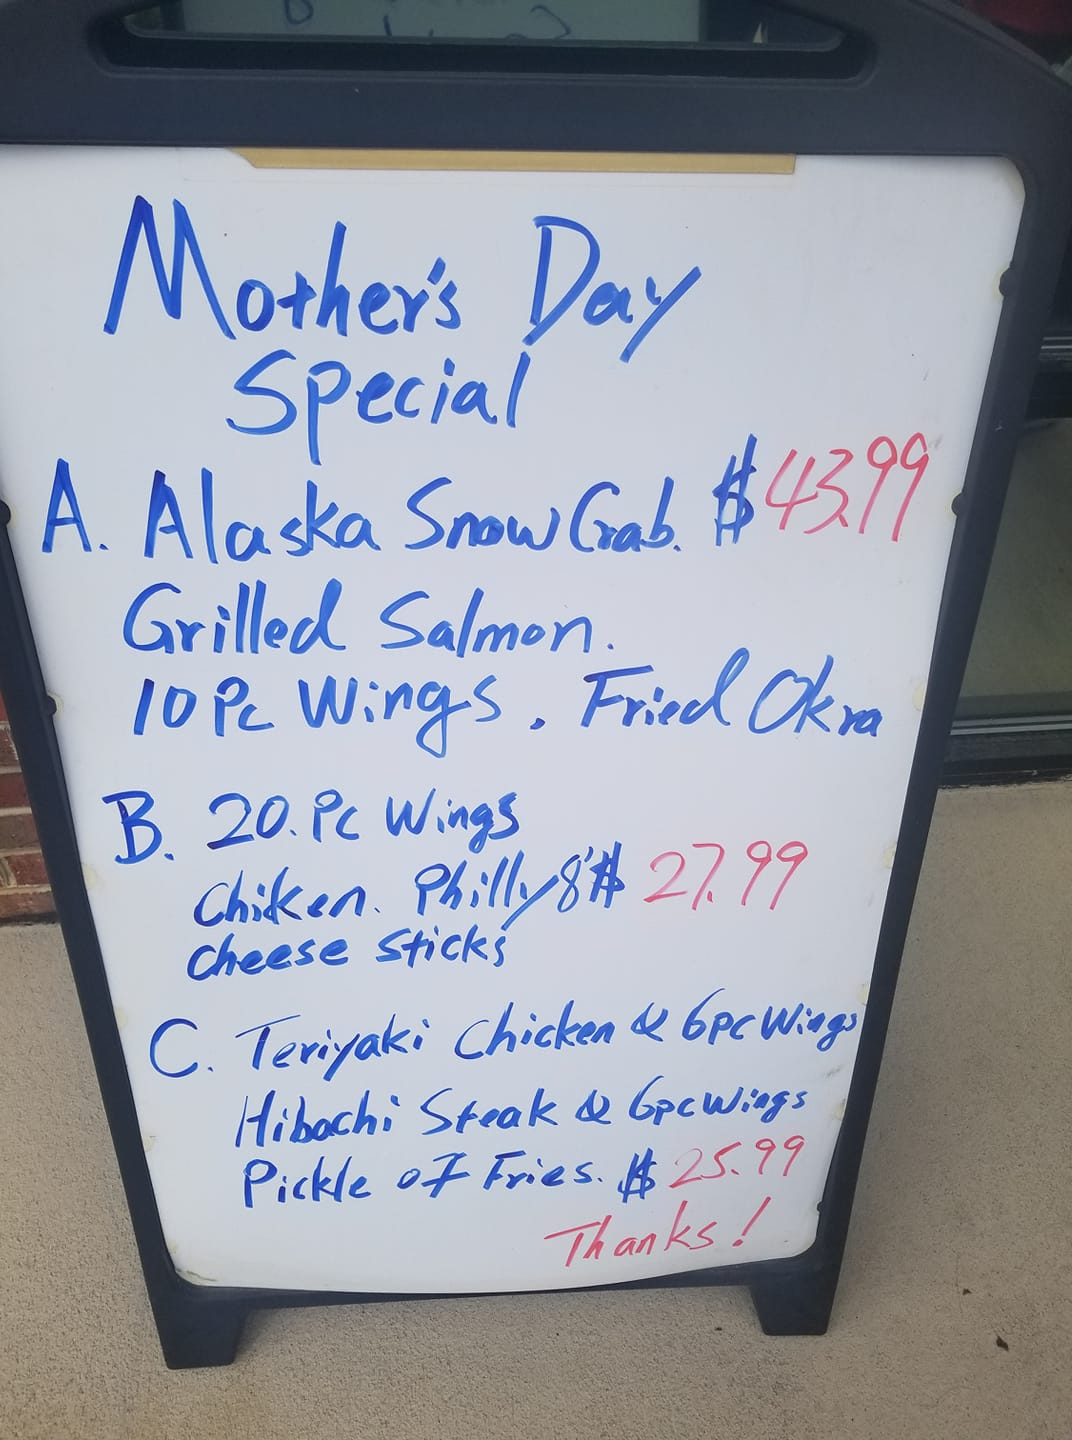 Mother's Day
Special
A. Alaska Snow Crab. $43.99
Grilled Salmon.
10 Pc Wings. Fried Okra
B. 20. Pc Wings
Chiken. Philly 8" $ 27.99
Cheese Sticks
C. Teriyaki Chicken & 6pc Wings
Hibachi Steak & 6pc Wings
Pickle of Fries. $ 25.99
Thanks!